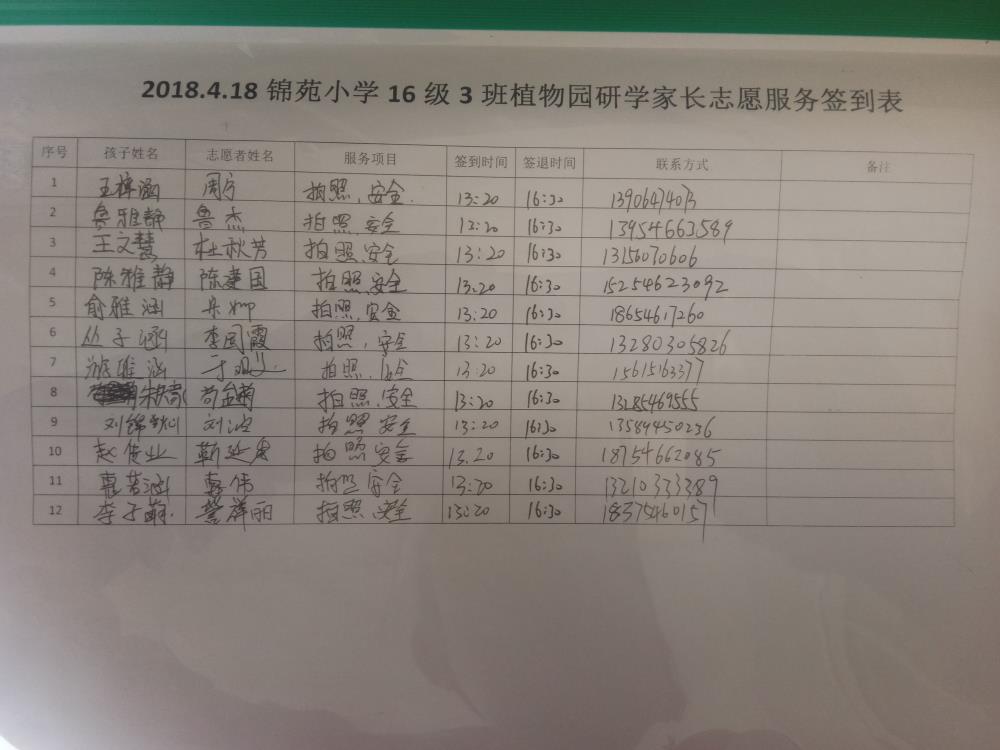 2018.4.18 锦苑小学 16 级 3 班植物园研学家长志愿服务签到表
序号 孩子姓名 志愿者姓名 服务项目 签到时间 签退时间 联系方式 备注
1 王梓涵 周宁 拍照、安全. 13:20 16:30
2 鲁雅静 鲁杰 拍照、安全 13:20 16:30 13954663589
3 王文慧 杜秋芳 拍照、安全 13:20 16:30 13156070606
4 陈雅静 陈建国 拍照、安全 13:20 16:30 15254623092
5 俞雅涵 拍照、安全 13:20 16:30 18654617260
6 丛子涵 李国霞 拍照、安全 13:20 16:30 13280305826
7 雅涵 拍照、安全 13:20 16:30 15615163377
8 拍照、安全 13:20 16:30 13285469555
9 刘锦 刘 拍照 安全 13:20 16:30 13589450256
10 赵俊业 靳延 拍照 安全 13.20 16:30 18754662085
11 伟 拍照 安全 13:20 16:30 13210333389
12 李子 祥丽 拍照、安全 13:20 16:30 18375460157